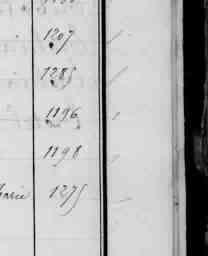 1207
1285
1196
1198
Marie 1275